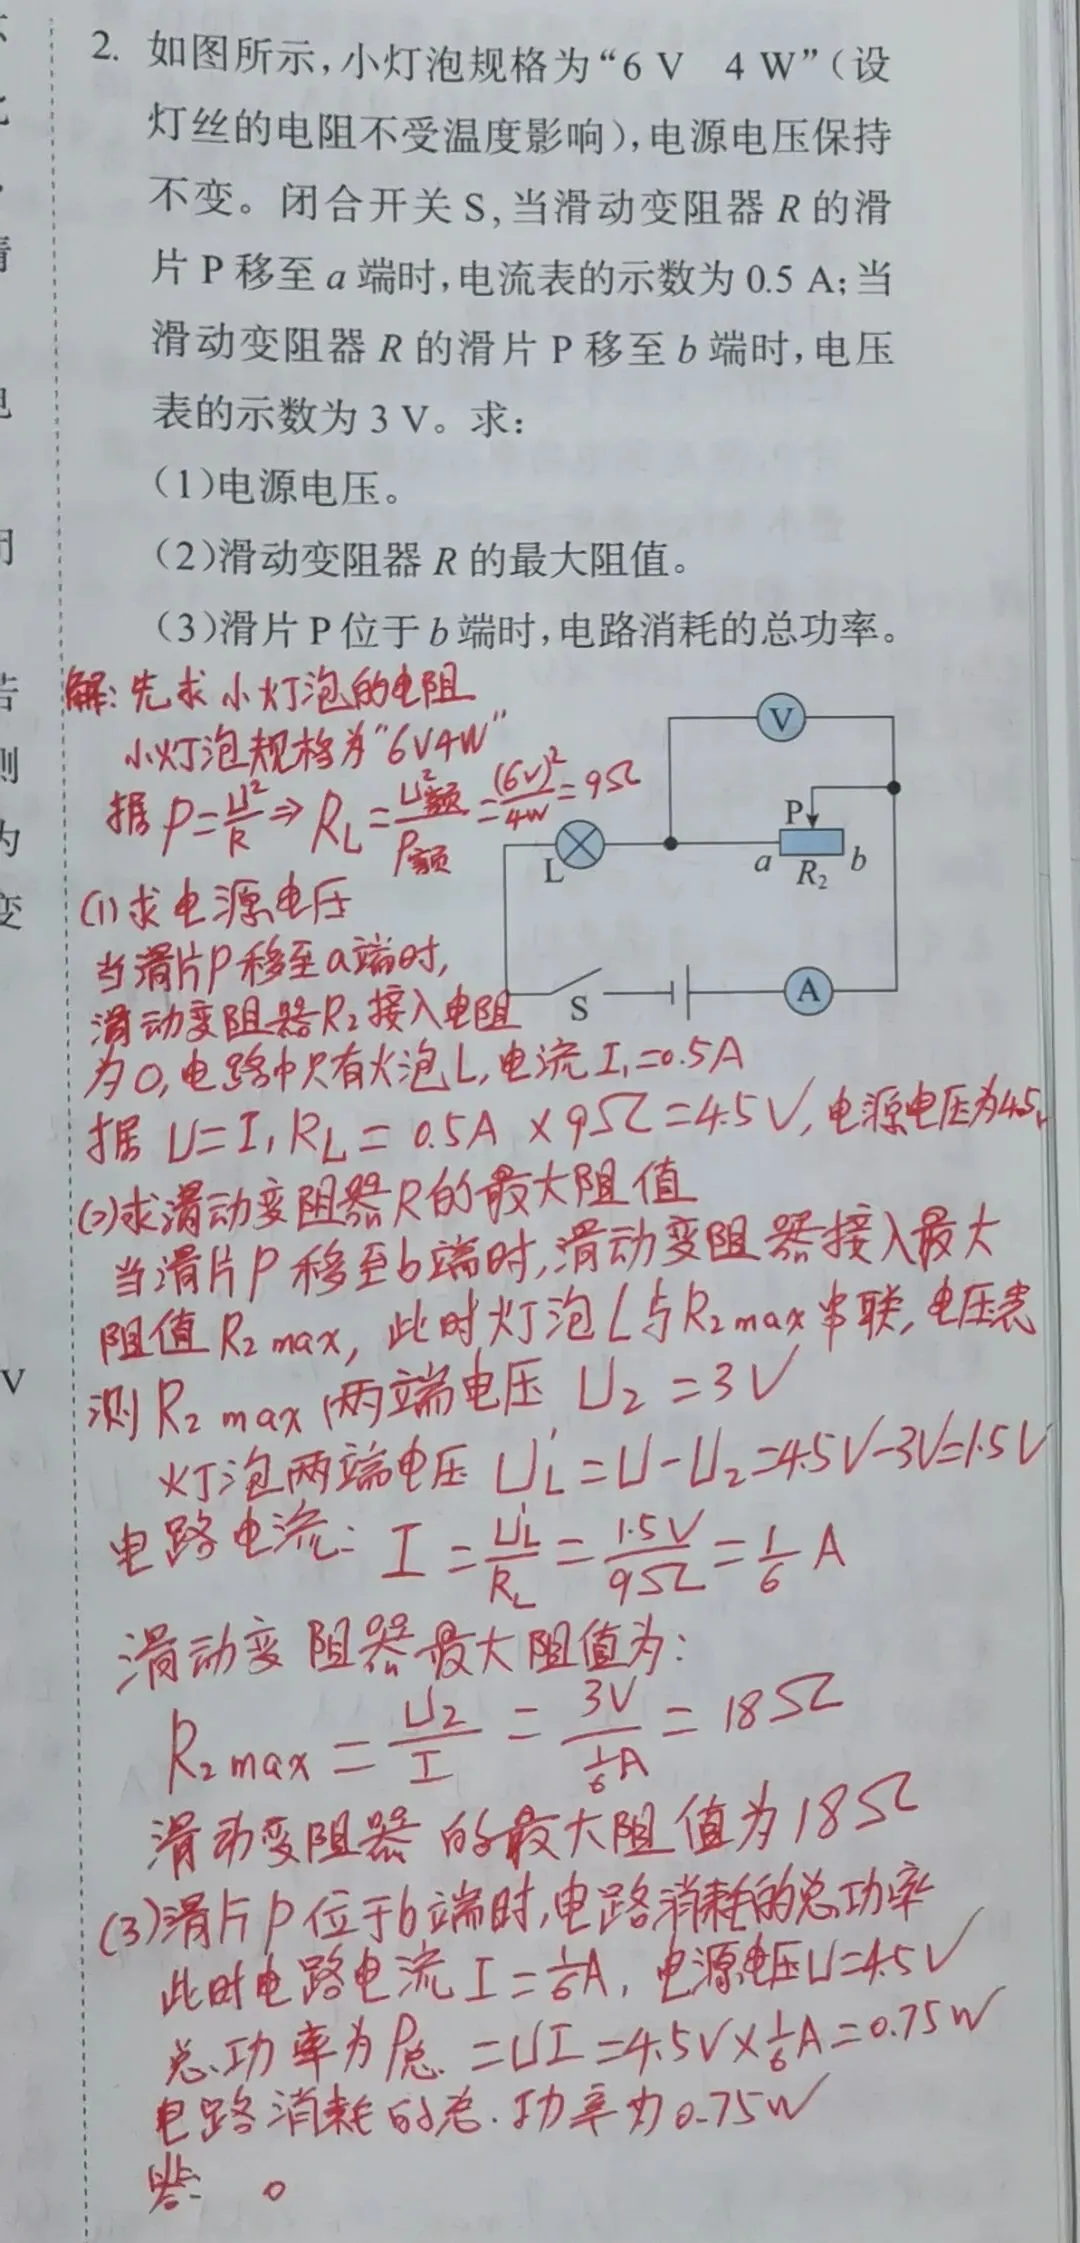 2. 如图所示,小灯泡规格为“6 V 4 W”(设
灯丝的电阻不受温度影响),电源电压保持
不变。闭合开关 S,当滑动变阻器 R 的滑
片 P 移至 a 端时,电流表的示数为 0.5 A;当
滑动变阻器 R 的滑片 P 移至 b 端时,电压
表的示数为 3 V。求:
(1)电源电压。
(2)滑动变阻器 R 的最大阻值。
(3)滑片 P 位于 b 端时,电路消耗的总功率。
解:先求小灯泡的电阻
小灯泡规格为“6V4W”
据 P=U²/R ⇒ R_L=U²额/P额=(6V)²/4W=9Ω
V
P
L
a R₂ b
S
A
(1)求电源电压
当滑片P移至a端时,
滑动变阻器R₂接入电阻
为0,电路中只有灯泡L,电流I₁=0.5A
据 U=I₁R_L=0.5A×9Ω=4.5V,电源电压为4.5V
(2)求滑动变阻器R的最大阻值
当滑片P移至b端时,滑动变阻器接入最大
阻值R₂max,此时灯泡L与R₂max串联,电压表
测R₂max两端电压 U₂=3V
灯泡两端电压 U_L'=U-U₂=4.5V-3V=1.5V
电路电流: I=U_L'/R_L=1.5V/9Ω=1/6 A
滑动变阻器最大阻值为:
R₂max=U₂/I=3V/(1/6 A)=18Ω
滑动变阻器的最大阻值为18Ω
(3)滑片P位于b端时,电路消耗的总功率
此时电路电流I=1/6A,电源电压U=4.5V
总功率为P总=UI=4.5V×1/6A=0.75W
电路消耗的总功率为0.75W
答: 。